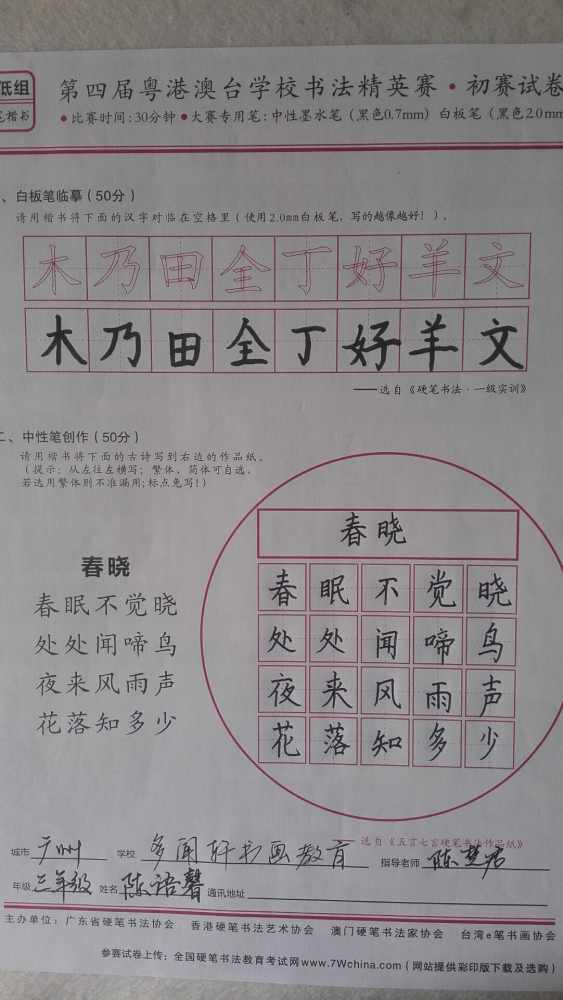 低组
笔楷书
第四届粤港澳台学校书法精英赛·初赛试卷
●比赛时间:30分钟●大赛专用笔:中性墨水笔(黑色0.7mm)白板笔(黑色2.0mm
、白板笔临摹(50分)
请用楷书将下面的汉字对临在空格里(使用2.0mm白板笔,写的越像越好!)。
木乃田全丁好羊文
木乃田全丁好羊文
——选自《硬笔书法·一级实训》
二、中性笔创作(50分)
请用楷书将下面的古诗写到右边的作品纸。
(提示:从左往左横写;繁体、简体可自选,
若选用繁体则不准漏用;标点免写!)
春晓
春眠不觉晓
处处闻啼鸟
夜来风雨声
花落知多少
春晓
春眠不觉晓
处处闻啼鸟
夜来风雨声
花落知多少
——选自《五言七言硬笔书法作品纸》
城市 广州 学校 多闻轩书画教育 指导老师 陈楚
年级 三年级 姓名 陈语馨 通讯地址
主办单位:广东省硬笔书法协会 香港硬笔书法艺术协会 澳门硬笔书法家协会 台湾e笔书画协会
参赛试卷上传:全国硬笔书法教育考试网www.7Wchina.com(网站提供彩印版下载及选购)